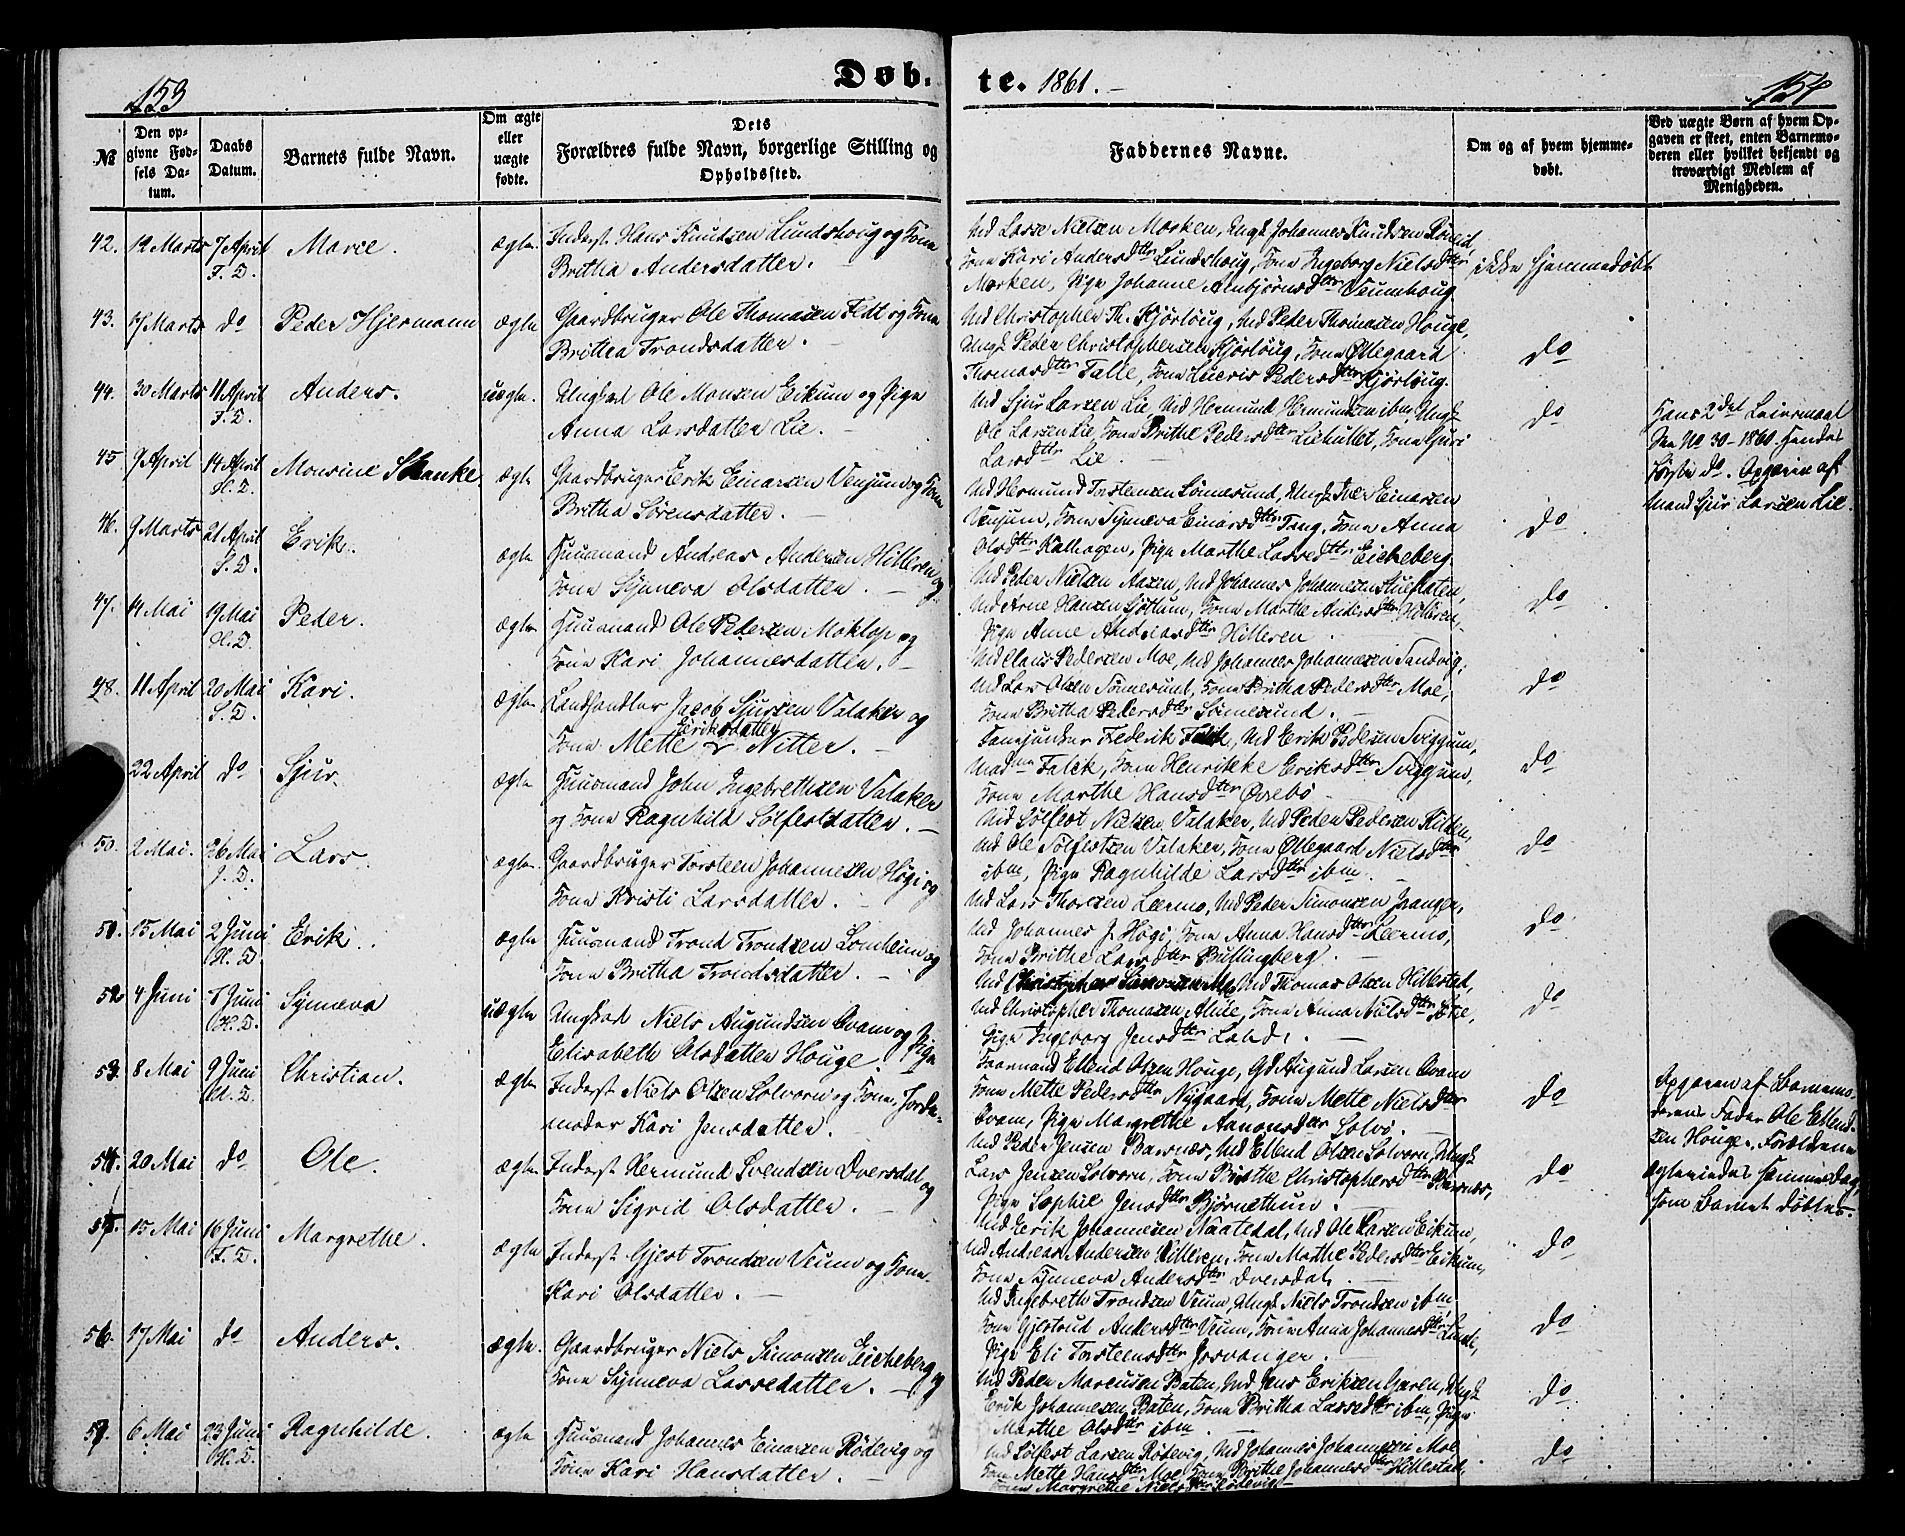 153
Døb-
te. 1861.
154
№
Den op-
givne Fød-
sels Da-
tum.
Daabs
Datum.
Barnets fulde Navn.
Om ægte
eller
uægte
fødte.
Dets
Forældres fulde Navn, borgerlige Stilling og
Opholdssted.
Faddernes Navne.
Om og af hvem hjemme-
døbt.
Ved uægte Børn af hvem Op-
gaven er skeet, enten Barnemo-
deren eller hvilket bekjendt og
troværdigt Medlem af
Menigheden.
42. 12 Marts 7 April Marie. ægte. Inderst Hans Knudsen Lundshoug og Kone
F. D.
Brithа Andersdatter.
Ud Lasse Nielsen Morken, Ungk Johannes Knudsen
Kone Kari Andersdtter Lundshoug, Kone Ingeborg Nielsdtter
Morken, Pige Johanne Veumhoug
ikke hjemmedøbt
43. 17 Marts do Peder Hjermann ægte Gaardbruger Ole Thomasen Fett og Kone
Brithа Trondsdatter.
Ud Christopher Th. Kjørloug, Ud Peder Thomasen Houge,
Ungk Peder Christophersen Kjørloug, Kone Øllegaard
Thomasdtter Talle, Kone Pedersdtter Kjørloug.
do
44. 30 Marts 11 April Anders. uægte. Ungkarl Ole Monsen Eikum og Pige
F. D.
Anna Larsdatter Lie.
Ud Sjur Larsen Lie, Ud Hermund Hermundsen ibm, Ungk
Ole Larsen Lie, Kone Brithe Pedersdtter Kone Guri
Larsdtter Lie.
do
Hans 2det Leiermaal
No 30-1860. Hendes
første do. Opgaven af
Mand Sjur Larsen Lie.
45 9 April 14 April Monsine Skanke ægte Gaardbruger Erik Einarsen Venjum og Kone
H. D.
Britha Sörensdatter.
Ud Hermund Torstensen Sönnesund, Ungk Iver Einarsen
Venjum, Kone Synneva Einarsdtter Tang, Kone Anna
Olsdtter Kalhagen, Pige Marthe Lassedtter Eickeberg.
do
46. 9 Marts 21 April Erik. ægte Huusmand Andreas Andersen Hilleren og
S. D.
Kone Synneva Olsdatter.
Ud Peder Nielsen Aasen, Ud Johannes Johannesen
Ud Arne Hansen Kone Marthe Andersdtter Hilleren,
Pige Anne Andreasdtter Hilleren
do
47. 14 Mai 19 Mai Peder. ægte Huusmand Ole Pedersen Moklop og
H. D.
Kone Kari Johannesdatter.
Ud Claus Pedersen Moe, Ud Johannes Johannesen Sandvig,
Ud Lars Olsen Sönnesund, Kone Britha Pedersdtter Moe,
Kone Britha Pedersdtter Sönnesund.
do
48. 11 April 20 Mai Kari. ægte. Landhandler Jacob Sjursen Valaker og
S. D.
Eriksdatter
Kone Mette Nitter.
Fanejunker Frederik Falck, Ud Erik Pedersen Sviggum,
Madme Falck, Kone Henrikke Eriksdtter Sviggum,
Kone Marthe Hansdtter Øvrebö
do
22 April do Sjur. ægte Huusmand John Ingebrethsen Valaker
og Kone Ragnhild Sölfestsdatter.
Ud Sölfest Nielsen Valaker, Ud Peder Pedersen Kilen,
Ud Ole Sölfestsen Valaker, Kone Øllegaard Nielsdtter
ibm, Pige Ragnhilde Larsdtter ibm.
do
50. 2 Mai. 26 Mai Lars. ægte Gaardbruger Torsteen Johannesen Högi og
J. D.
Kone Kristi Larsdatter.
Ud Lars Thorsen Leermo, Ud Peder Simonsen Pranger,
Ud Johannes J. Högi, Kone Anna Hansdtter Leermo,
Kone Brithe Larsdtter Bullingberg.
do
51. 15 Mai 2 Juni Erik. ægte Huusmand Trond Trondsen Lomheim og
H. D.
Kone Britha Trondsdatter.
Ud Christopher Ud Thomas Olsen Hillestad,
Ud Christopher Thomasen Kone Anna Nielsdtter
Pige Ingeborg Jensdtter
do
52. 4 Juni 7 Juni Synneva uægte Ungkarl Niels Augundsen Qvam og Pige
H. D.
Elisabeth Olsdatter Houge.
Faarmand Ellend Olsen Houge, Gd Augund Larsen Qvam
Kone Mette Pedersdtter Nygaard, Kone Mette Nielsdtter
Qvam, Pige Margrethe Aanonsdtter
do
Opgaven af Barnemo-
derens Fader Ole Ellend-
sen Houge. Forældrene
ægteviedes samme dag,
som Barnet döbtes.
53. 8 Mai 9 Juni Christian. ægte Inderst Niels Olsen Solvorn og Kone, Jorde-
U. D.
moder Kari Jensdatter.
Ud Peder Jensen Barsnes, Ud Ellend Olsen Solvorn, Ungk
Lars Jensen Solvorn, Kone Brithe Christophersdtter Barsnes,
Pige Sophie Jensdtter Björnethun.
do
54. 20 Mai do Ole. ægte Inderst Hermund Svendsen Dversdal og
Kone Sigrid Olsdatter.
Ud Erik Johannesen Naatedal, Ud Ole Larsen Eikum,
Ud Andreas Andersen Hilleren, Kone Marthe Pedersdtter Eikum,
Kone Synneva Andersdtter Dversdal
do
55. 15 Mai 16 Juni Margrethe. ægte Inderst Gjest Trondsen Veum og Kone
F. D.
Kari Olsdatter.
Ud Ingebreth Trondsen Veum, Ungk Niels Trondsen ibm,
Kone Gjertrud Andersdtter Veum, Kone Anna Johannesdtter
Pige Eli Torsteensdtter Josvanger.
do
56. 17 Mai do Anders. ægte. Gaardbruger Niels Simonsen Eickeberg og
Kone Synneva Lassedatter.
Ud Peder Marcusen Baten, Ud Jens Eriksen Ungk
Erik Johannesen Baten, Kone Britha Lassedtter ibm, Pige
Marthe Olsdtter ibm.
do
57. 6 Mai 23 Juni Ragnhilde. ægte Huusmand Johannes Einarsen Rödevig og
H. D.
Kone Kari Hansdatter.
Ud Sölfest Larsen Rödevig, Ud Johannes Johannesen Moe
Kone Mette Hansdtter Moe, Kone Brithe Johannesdtter Hillestad,
Kone Margrethe Nielsdtter Rödevig
do